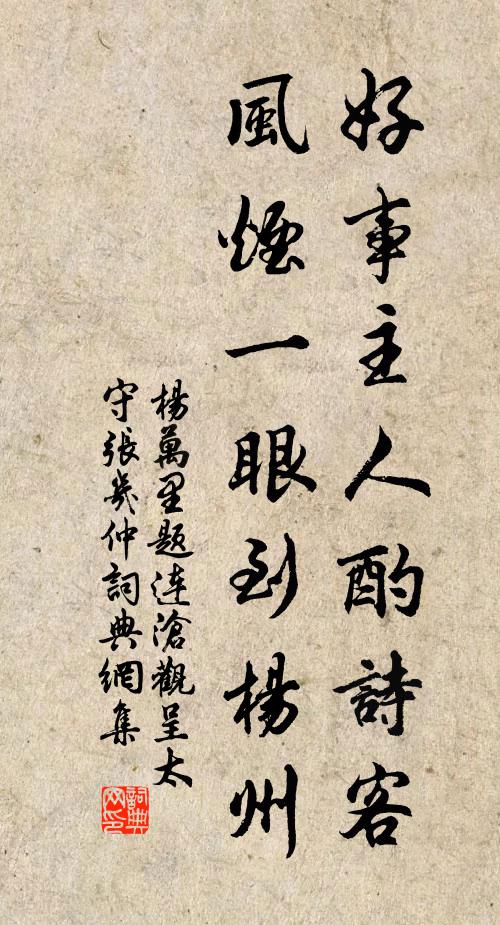 好事主人酌詩客
風煙一眼到楊州
楊萬里題连滄觀呈太
守張幾仲詞典網集
詞典
网印